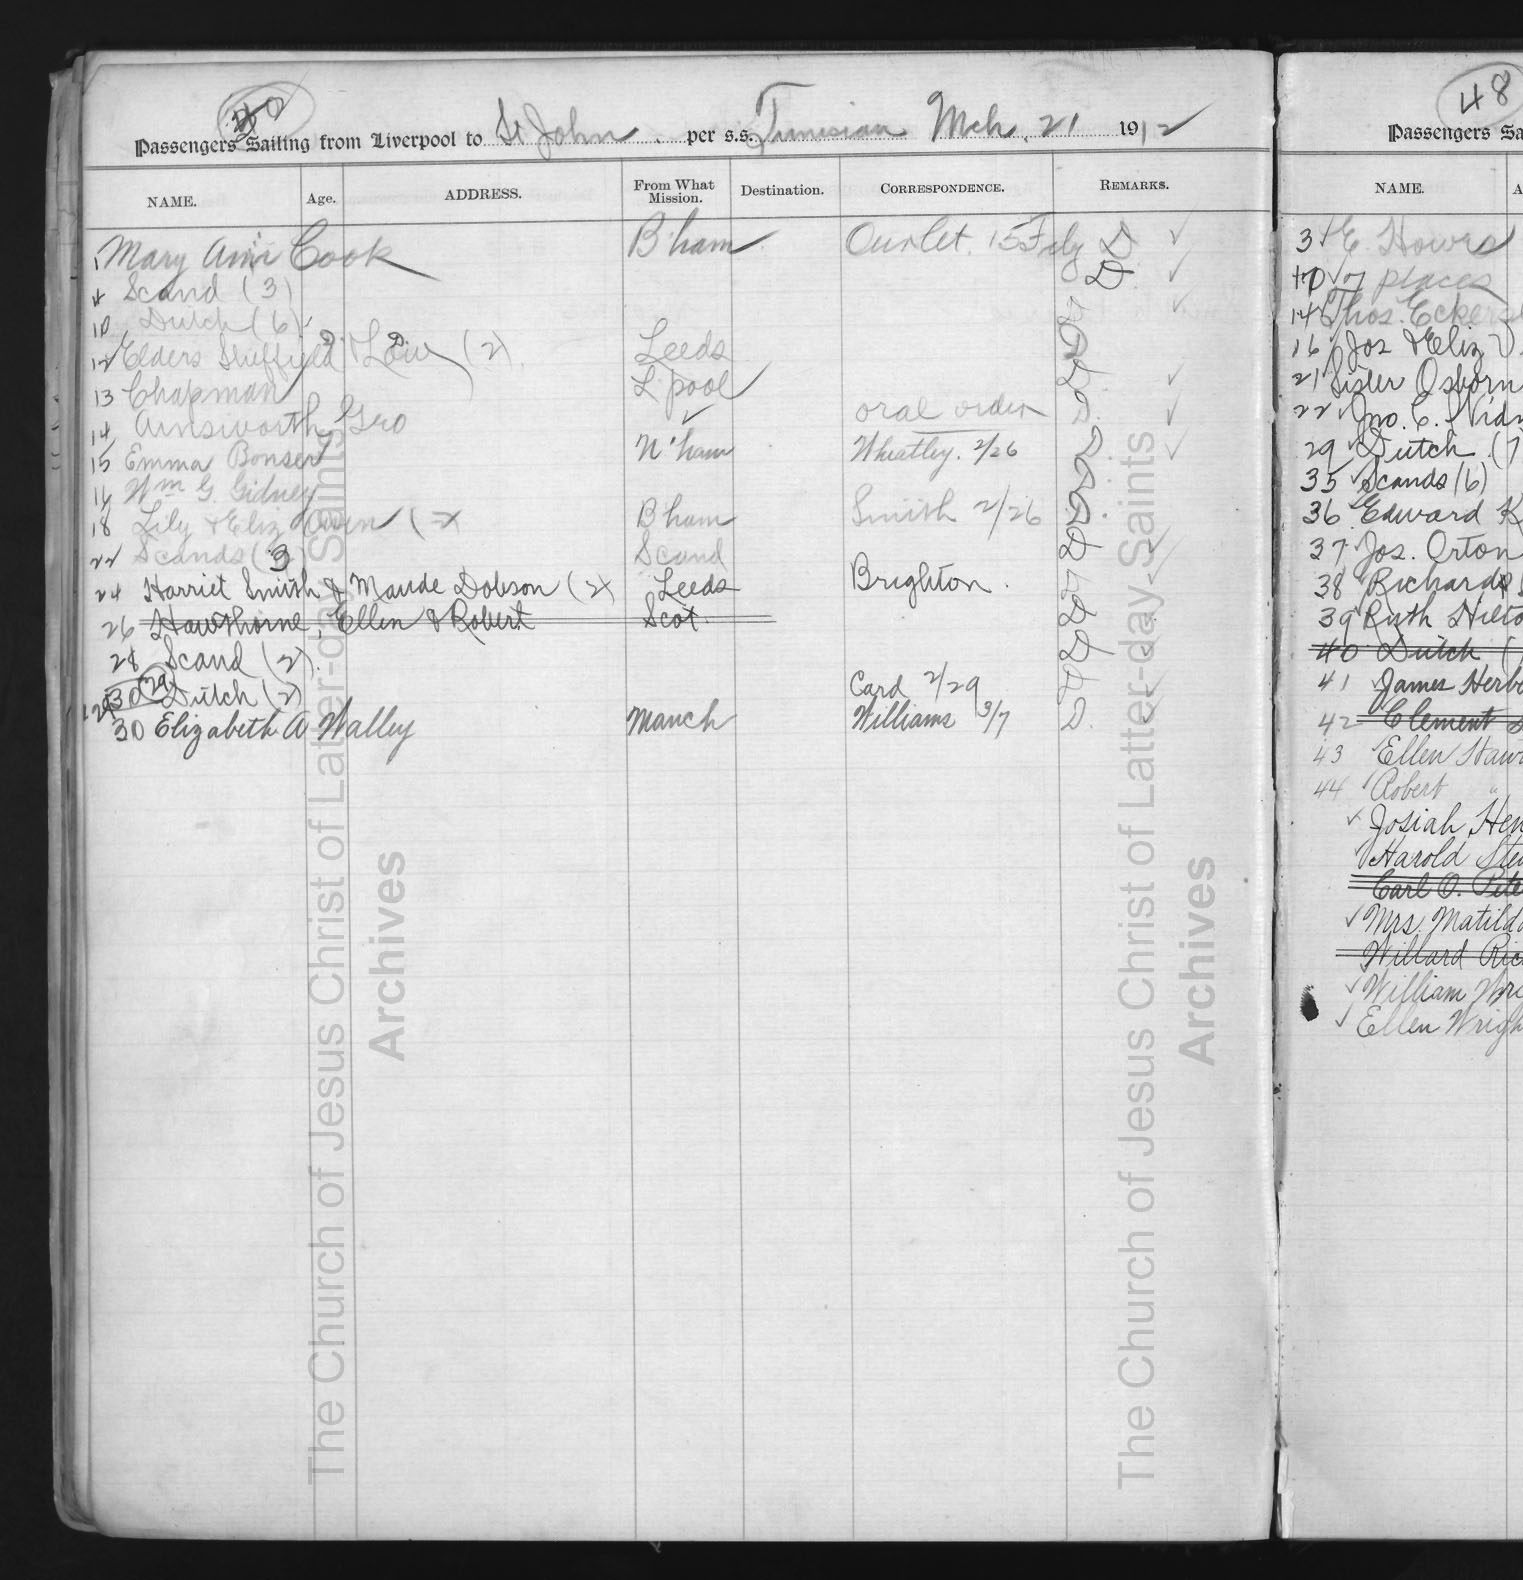 Passengers Sailing from Liverpool to St John per s.s. Tunisian Mch. 21 1912
NAME. Age. ADDRESS. From What Mission. Destination. CORRESPONDENCE. REMARKS.
1 Mary Ann Cook B'ham Our let. 15 Feby D ✓
4 Scand (3) D ✓
10 Dutch (6) ✓
12 Elders Sheffield & Low (2) Leeds D
13 Chapman L'pool D ✓
14 Ainsworth, Geo ✓ oral order D. ✓
15 Emma Bonser N'ham Wheatley. 2/26 D ✓
16 Wm G. Gidney D
18 Lily & Eliz Owen (2) B'ham Smith 2/26 D
22 Scands (3) Scand D ✓
24 Harriet Smith & Maude Dobson (2) Leeds Brighton. ✓
26 Hawthorne, Ellen & Robert Scot. D
28 Scand (2). D
30 (29) Dutch (2) Card 2/29
30 Elizabeth A Walley Manch Williams 3/7 D.
48
Passengers Sa
NAME. A
3 ✓ E. Howes
10 ✓ 7 places
14 Thos. Eckers
16 Jos & Eliz
21 Sister Osborn
22 Jno. E. Nidn
29 ✓ Dutch. (7
35 Scands (6)
36 Edward K
37 Jos. Orton
38 Richard &
39 Ruth Hilto
40 Dutch (
41 James Herbe
42 Clement
43 Ellen Haw
44 Robert "
✓ Josiah Hen
✓ Harold Ste
Carl O. Pete
✓ Mrs. Matilda
Willard Ric
✓ William Wri
✓ Ellen Wrigh
The Church of Jesus Christ of Latter-day Saints
Archives
The Church of Jesus Christ of Latter-day Saints
Archives